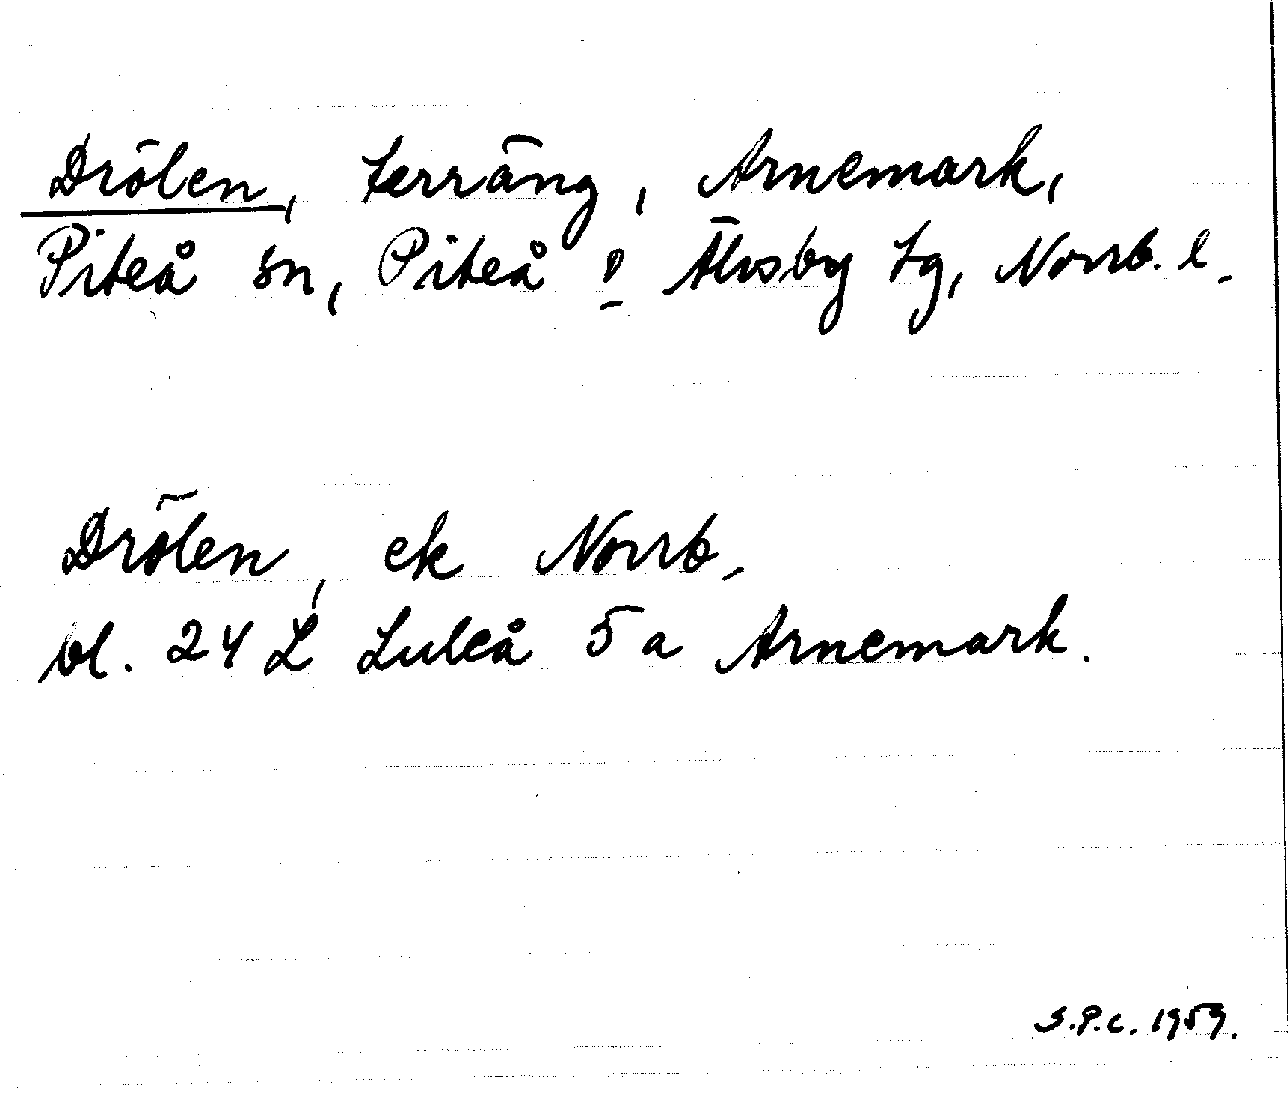 Drölen, terräng, Arnemark,
Piteå sn, Piteå o Älvsby tg, Norrb. l.
Drölen, ek Norrb.
bl. 24 L Luleå 5 a Arnemark.
S.P.C. 1959.